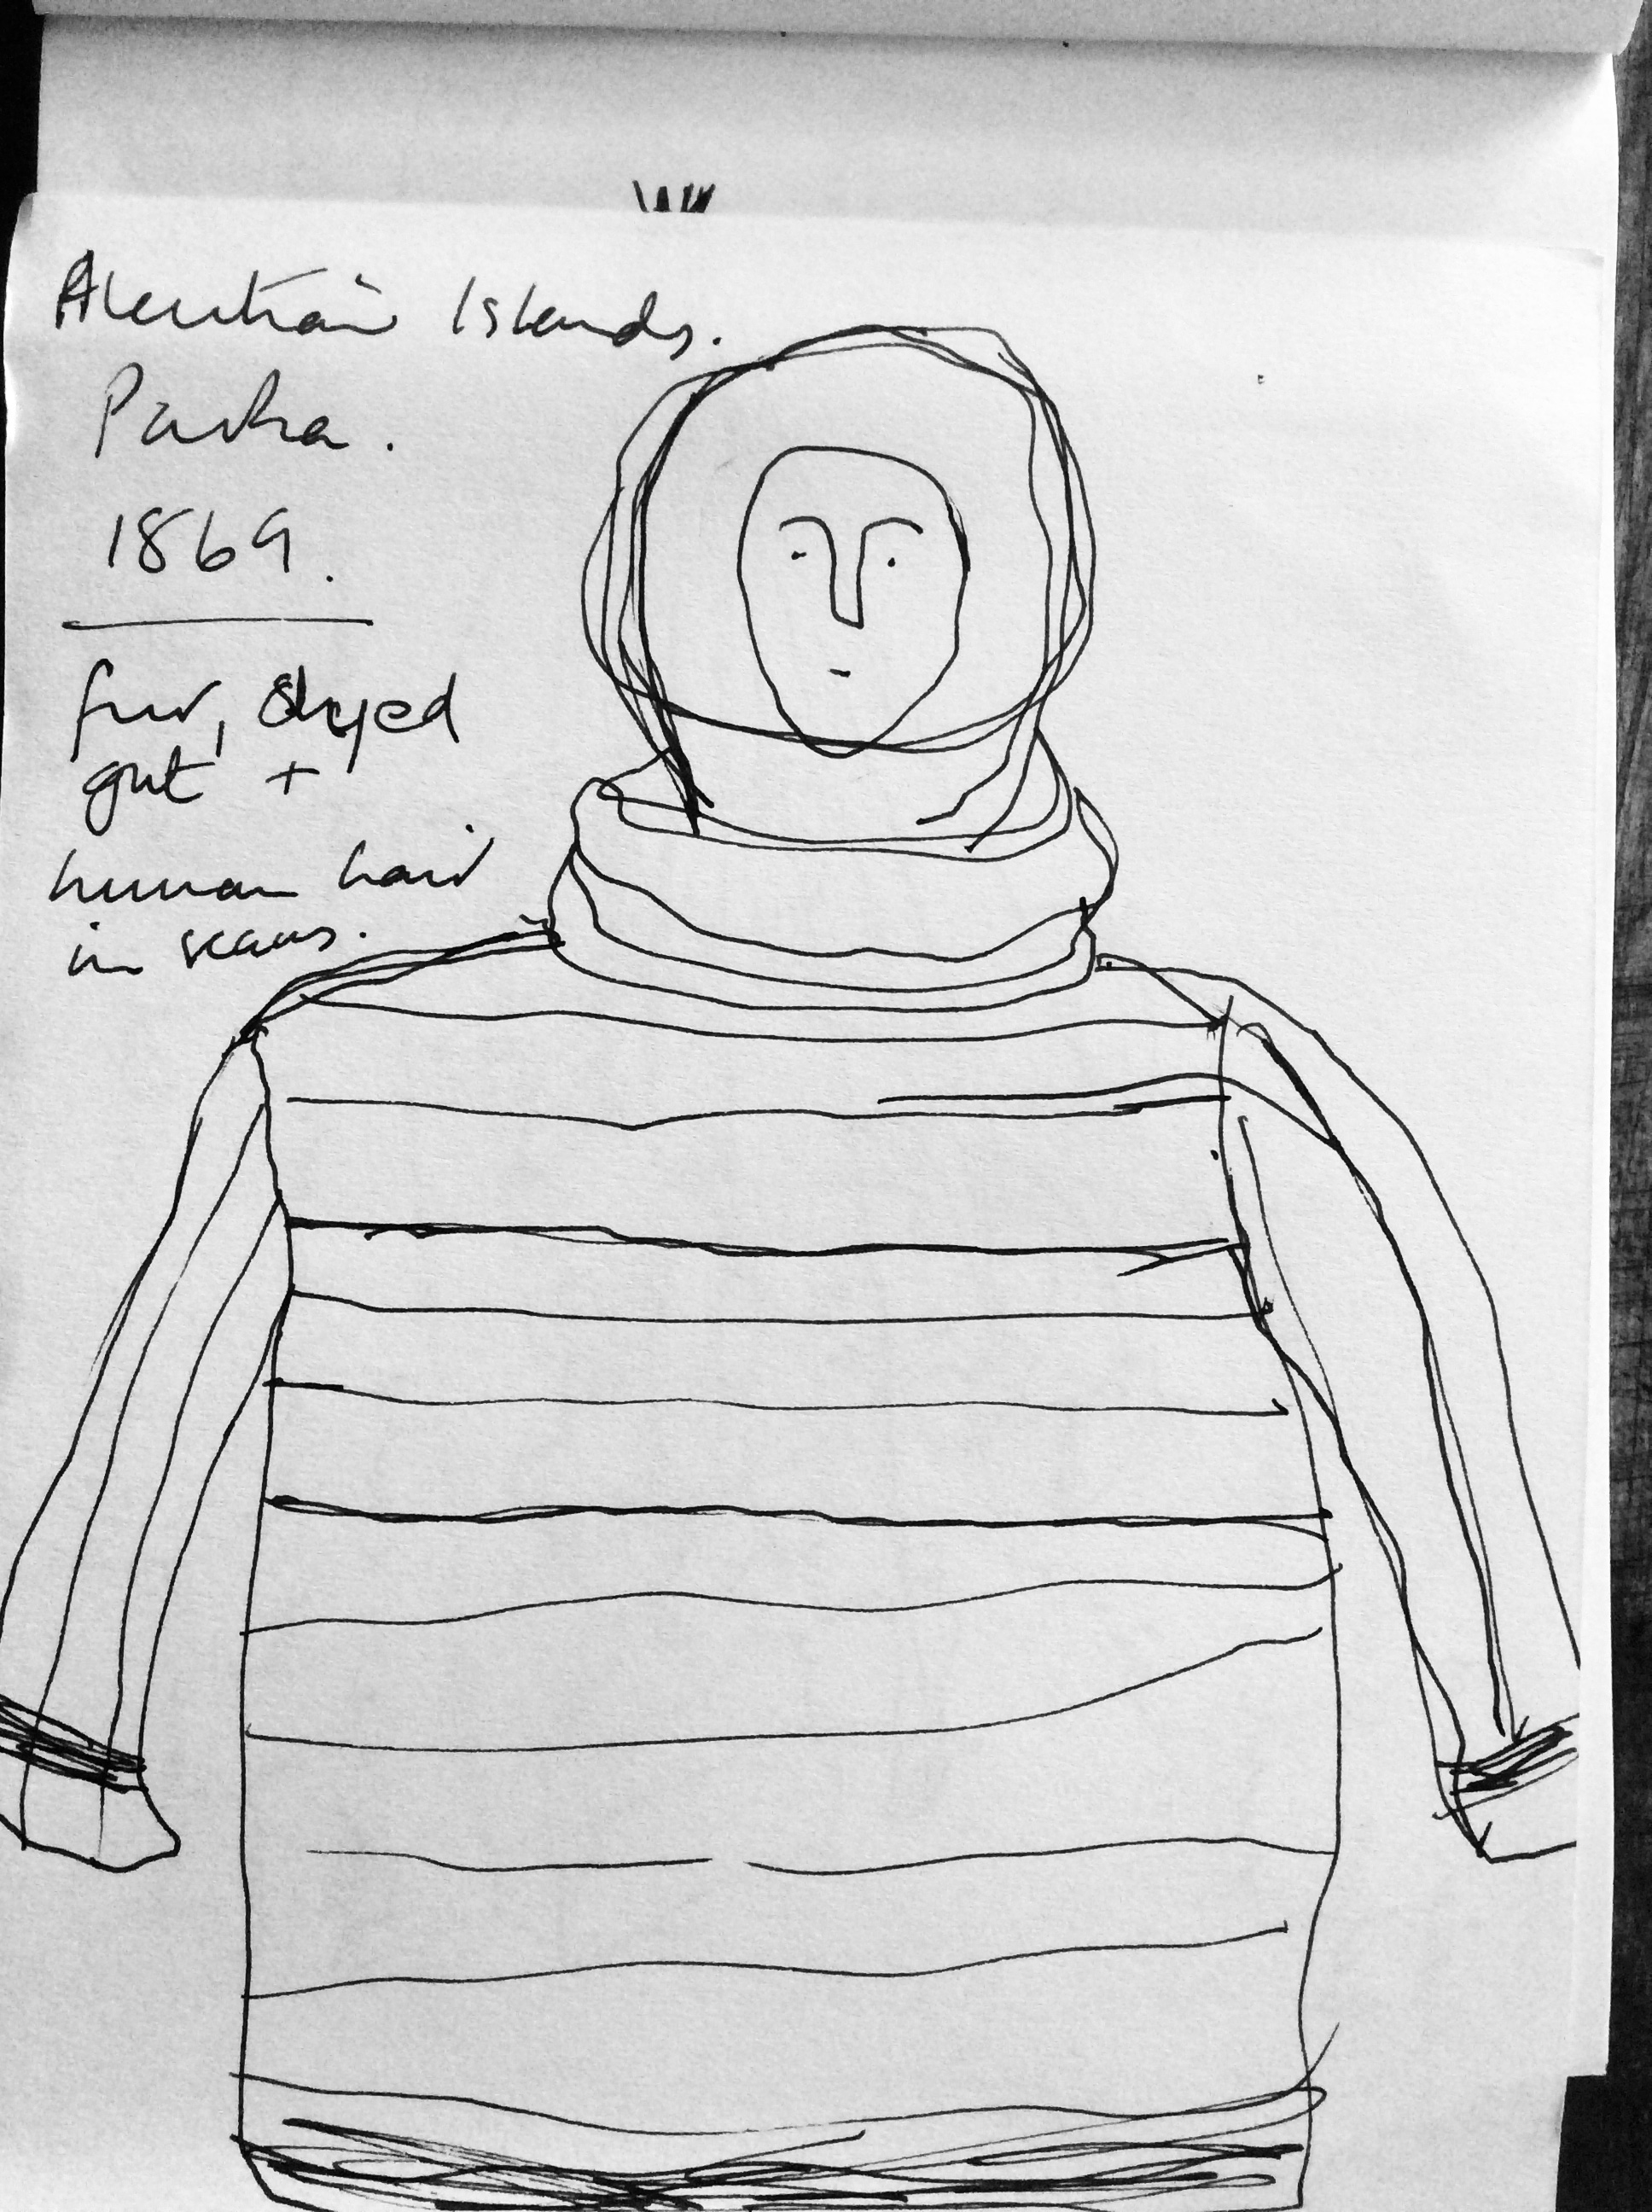 Aleutian Islands.
Parka.
1869.
fur, dyed
gut +
human hair
in seams.